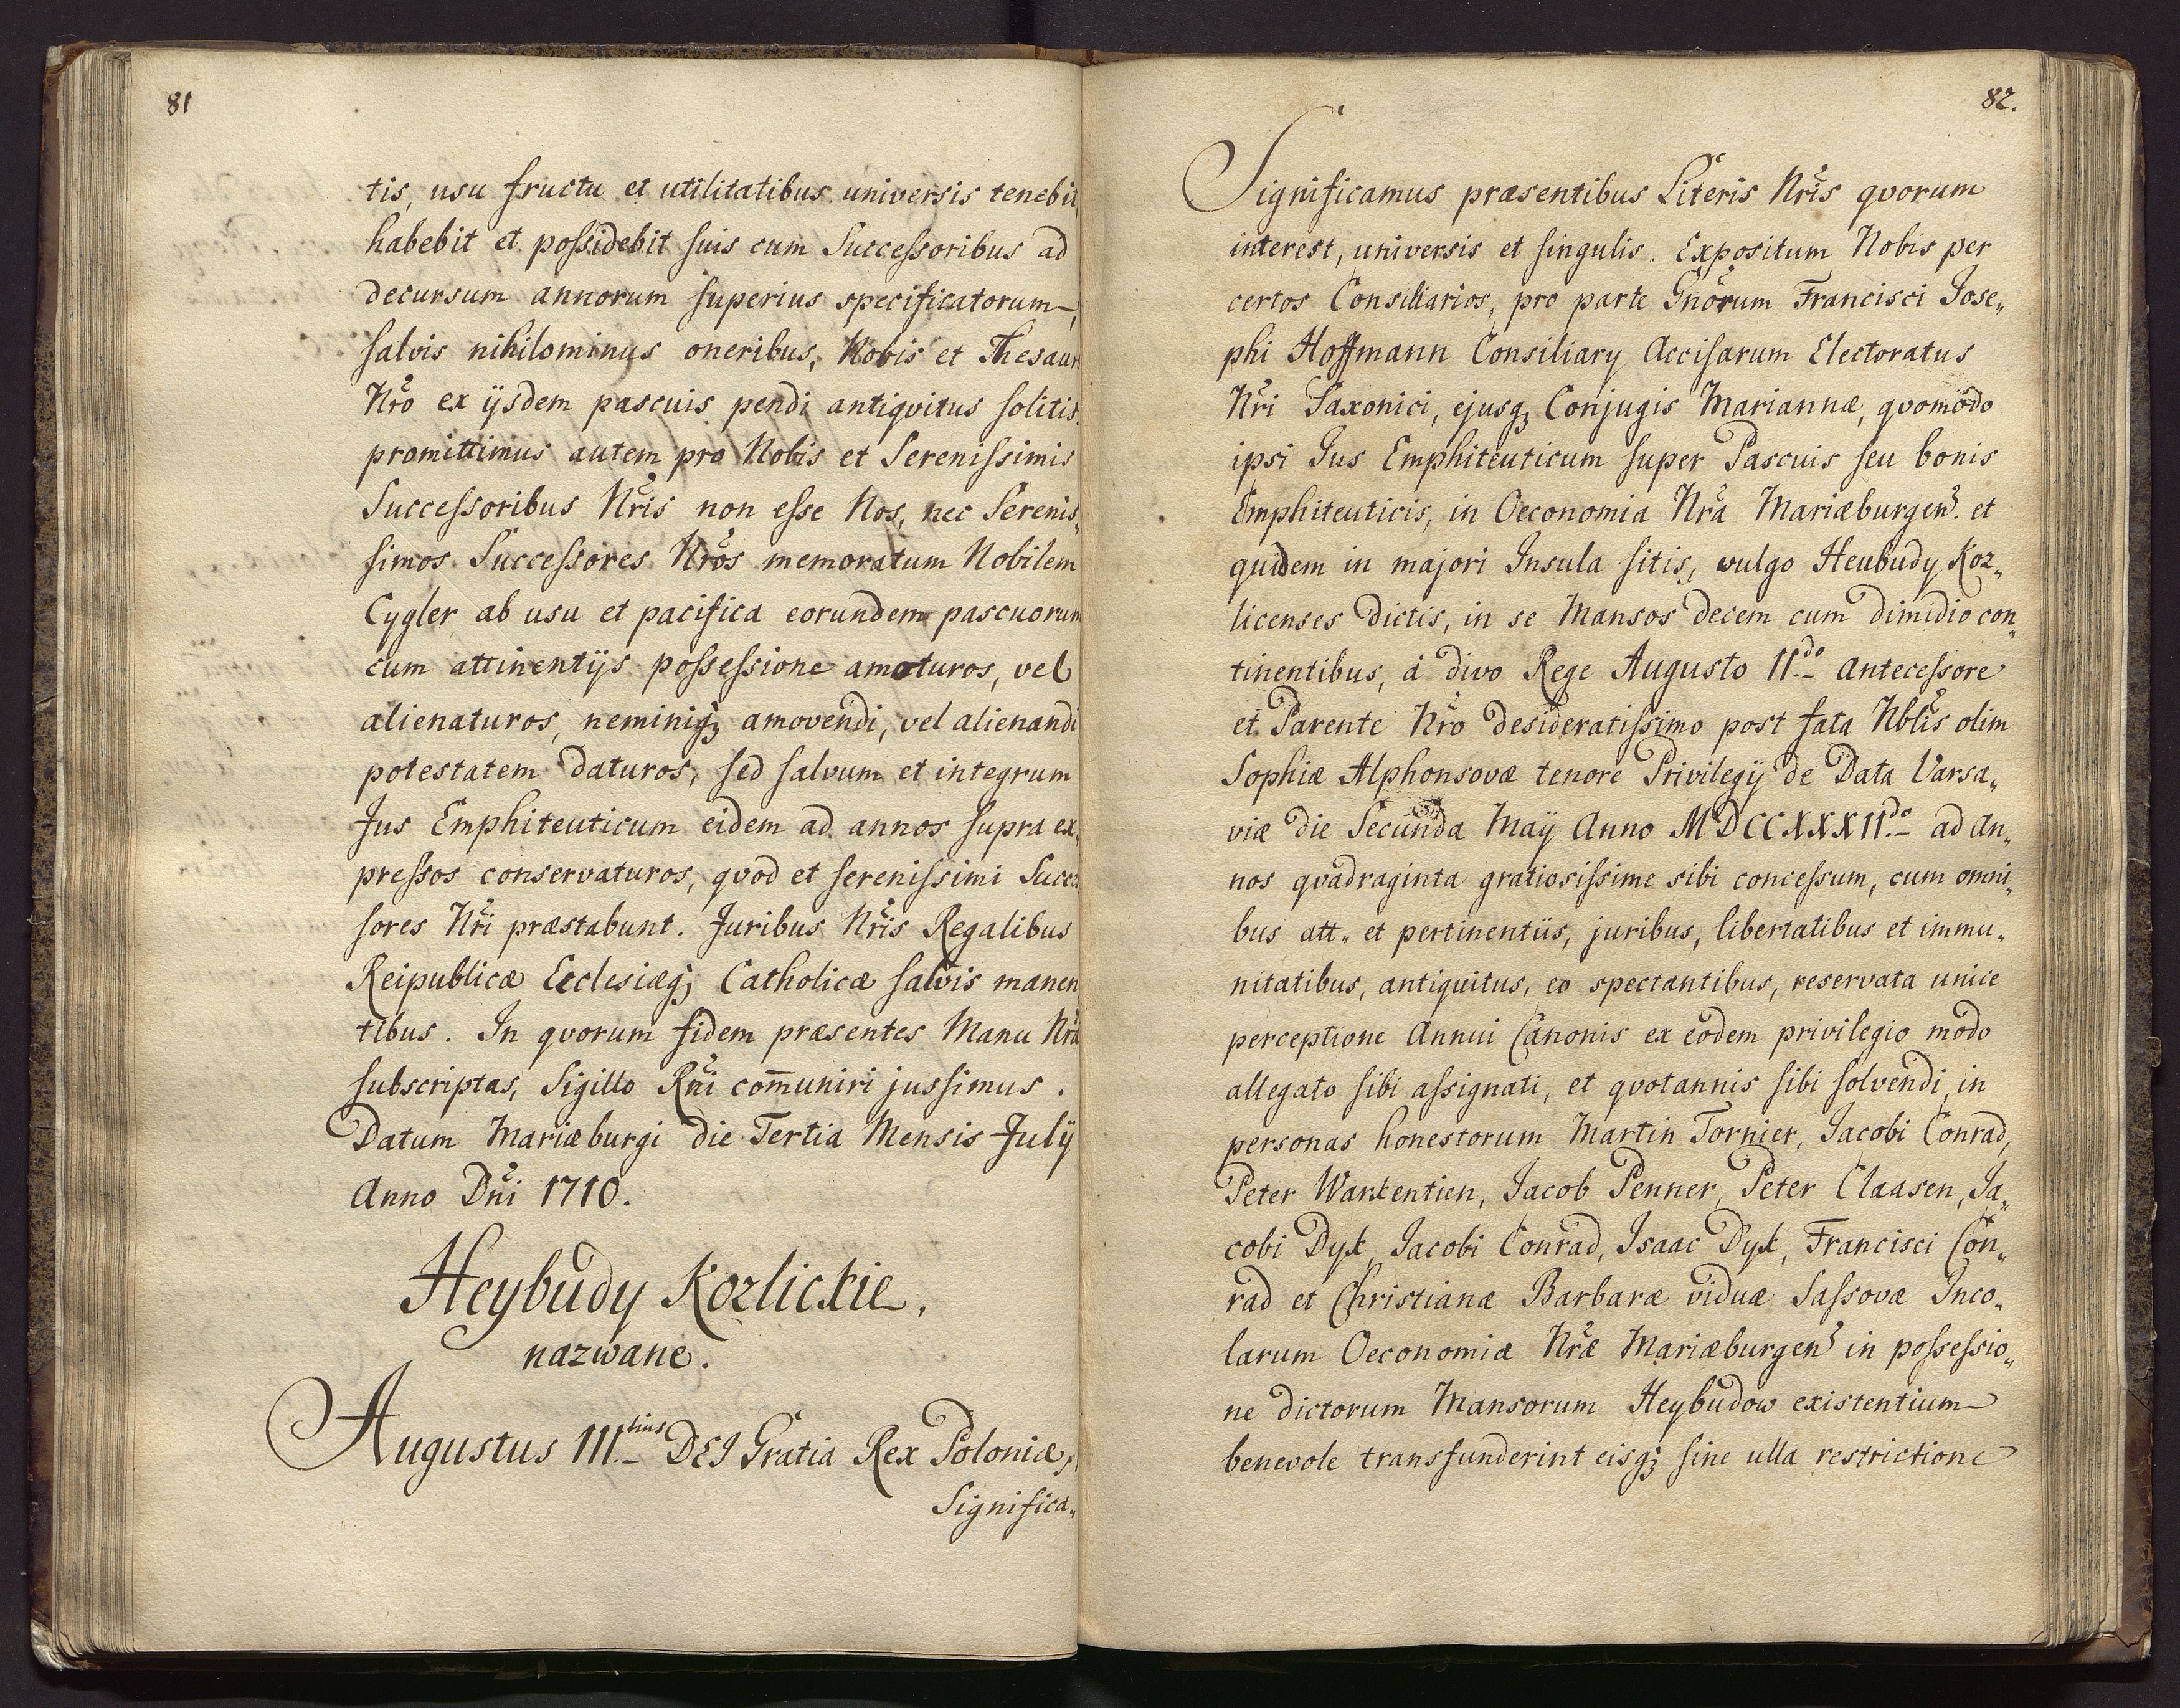 81
tis, usu fructu et utilitatibus universis tenebit
habebit et possidebit suis cum Successoribus ad
decursum annorum superius specificatorum,
salvis nihilominus oneribus, Nobis et Thesauro
Nro ex ijsdem pascuis pendi antiqvitus solitis.
promittimus autem pro Nobis et Serenissimis
Successoribus Nris non esse Nos, nec Serenis„
simos Successores Nros memoratum Nobilem
Cygler ab usu et pacifica eorundem pascuorum
cum attinentijs possessione amoturos, vel
alienaturos, neminiqz amovendi, vel alienandi
potestatem daturos, sed salvum et integrum
Jus Emphiteuticum eidem ad annos supra ex„
pressos conservaturos, qvod et serenissimi Succes
sores Nri præstabunt. Juribus Nris Regalibus
Reipublicæ Ecclesiæqz Catholicæ salvis manen
tibus. In qvorum fidem præsentes Manu Nra
subscriptas, Sigillo Rni com̄uniri jussimus.
Datum Mariæburgi die Tertia Mensis Julij
Anno Dni 1710.
Heybudy Kozlickie,
nazwane.
Augustus III.tius DEI Gratia Rex Poloniæ,
Significa„
82.
Significamus præsentibus Literis Nris qvorum
interest, universis et singulis. Expositum Nobis per
certos Consiliarios, pro parte Gnorum Francisci Jose„
phi Hoffmann Consiliary Accisarum Electoratus
Nri Saxonici, ejusqz Conjugis Mariannæ, qvomodo
ipsi Jus Emphiteuticum super Pascuis seu bonis
Emphiteuticis, in Oeconomia Nra Mariæburgen. et
quidem in majori Insula sitis, vulgo Heubudy Koz„
licenses dictis, in se Mansos decem cum dimidio con„
tinentibus, á divo Rege Augusto II.do Antecessore
et Parente Nro desideratissimo post fata Nblis olim
Sophiæ Alphonsovæ tenore Privilegij de Data Varsa„
viæ die Secunda Maij Anno MDCCXXXII.do ad An„
nos qvadraginta gratiosissime sibi concessum, cum omni„
bus att„ et pertinentiis, juribus, libertatibus et immu„
nitatibus, antiquitus, eo spectantibus, reservata unice
perceptione Annui Canonis ex eodem privilegio modo
allegato sibi assignati, et qvotannis sibi solvendi, in
personas honestorum Martin Tornier, Jacobi Conrad,
Peter Warkentien, Jacob Penner, Peter Claasen, Ja„
cobi Dyk, Jacobi Conrad, Isaac Dyk, Francisci Con„
rad et Christianæ Barbaræ viduæ Sassovæ Inco„
larum Oeconomiæ Nræ Mariæburgen in possessio„
ne dictorum Mansorum Heybudow existentium
benevole transfunderint eisqz sine ulla restrictione